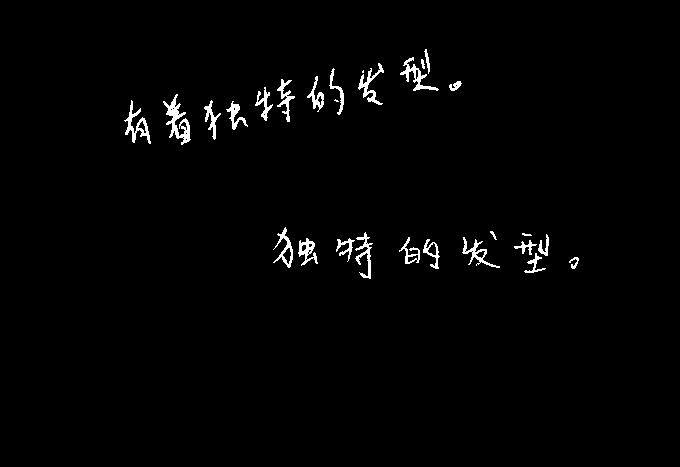 有着独特的发型。
独特的发型。